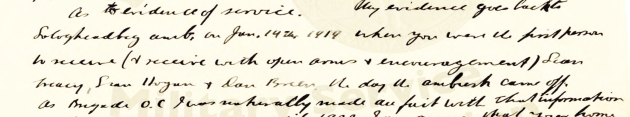 As evidence of service. My evidence goes back to
Soloheadbeg amb. on Jan. 1919 when you were the first person
to receive (& receive with open arms & encouragement) Sean
Treacy, Sean Hogan & Dan Breen the day the ambush came off.
As Brigade O.C. I was naturally made au fait with that information
that your home